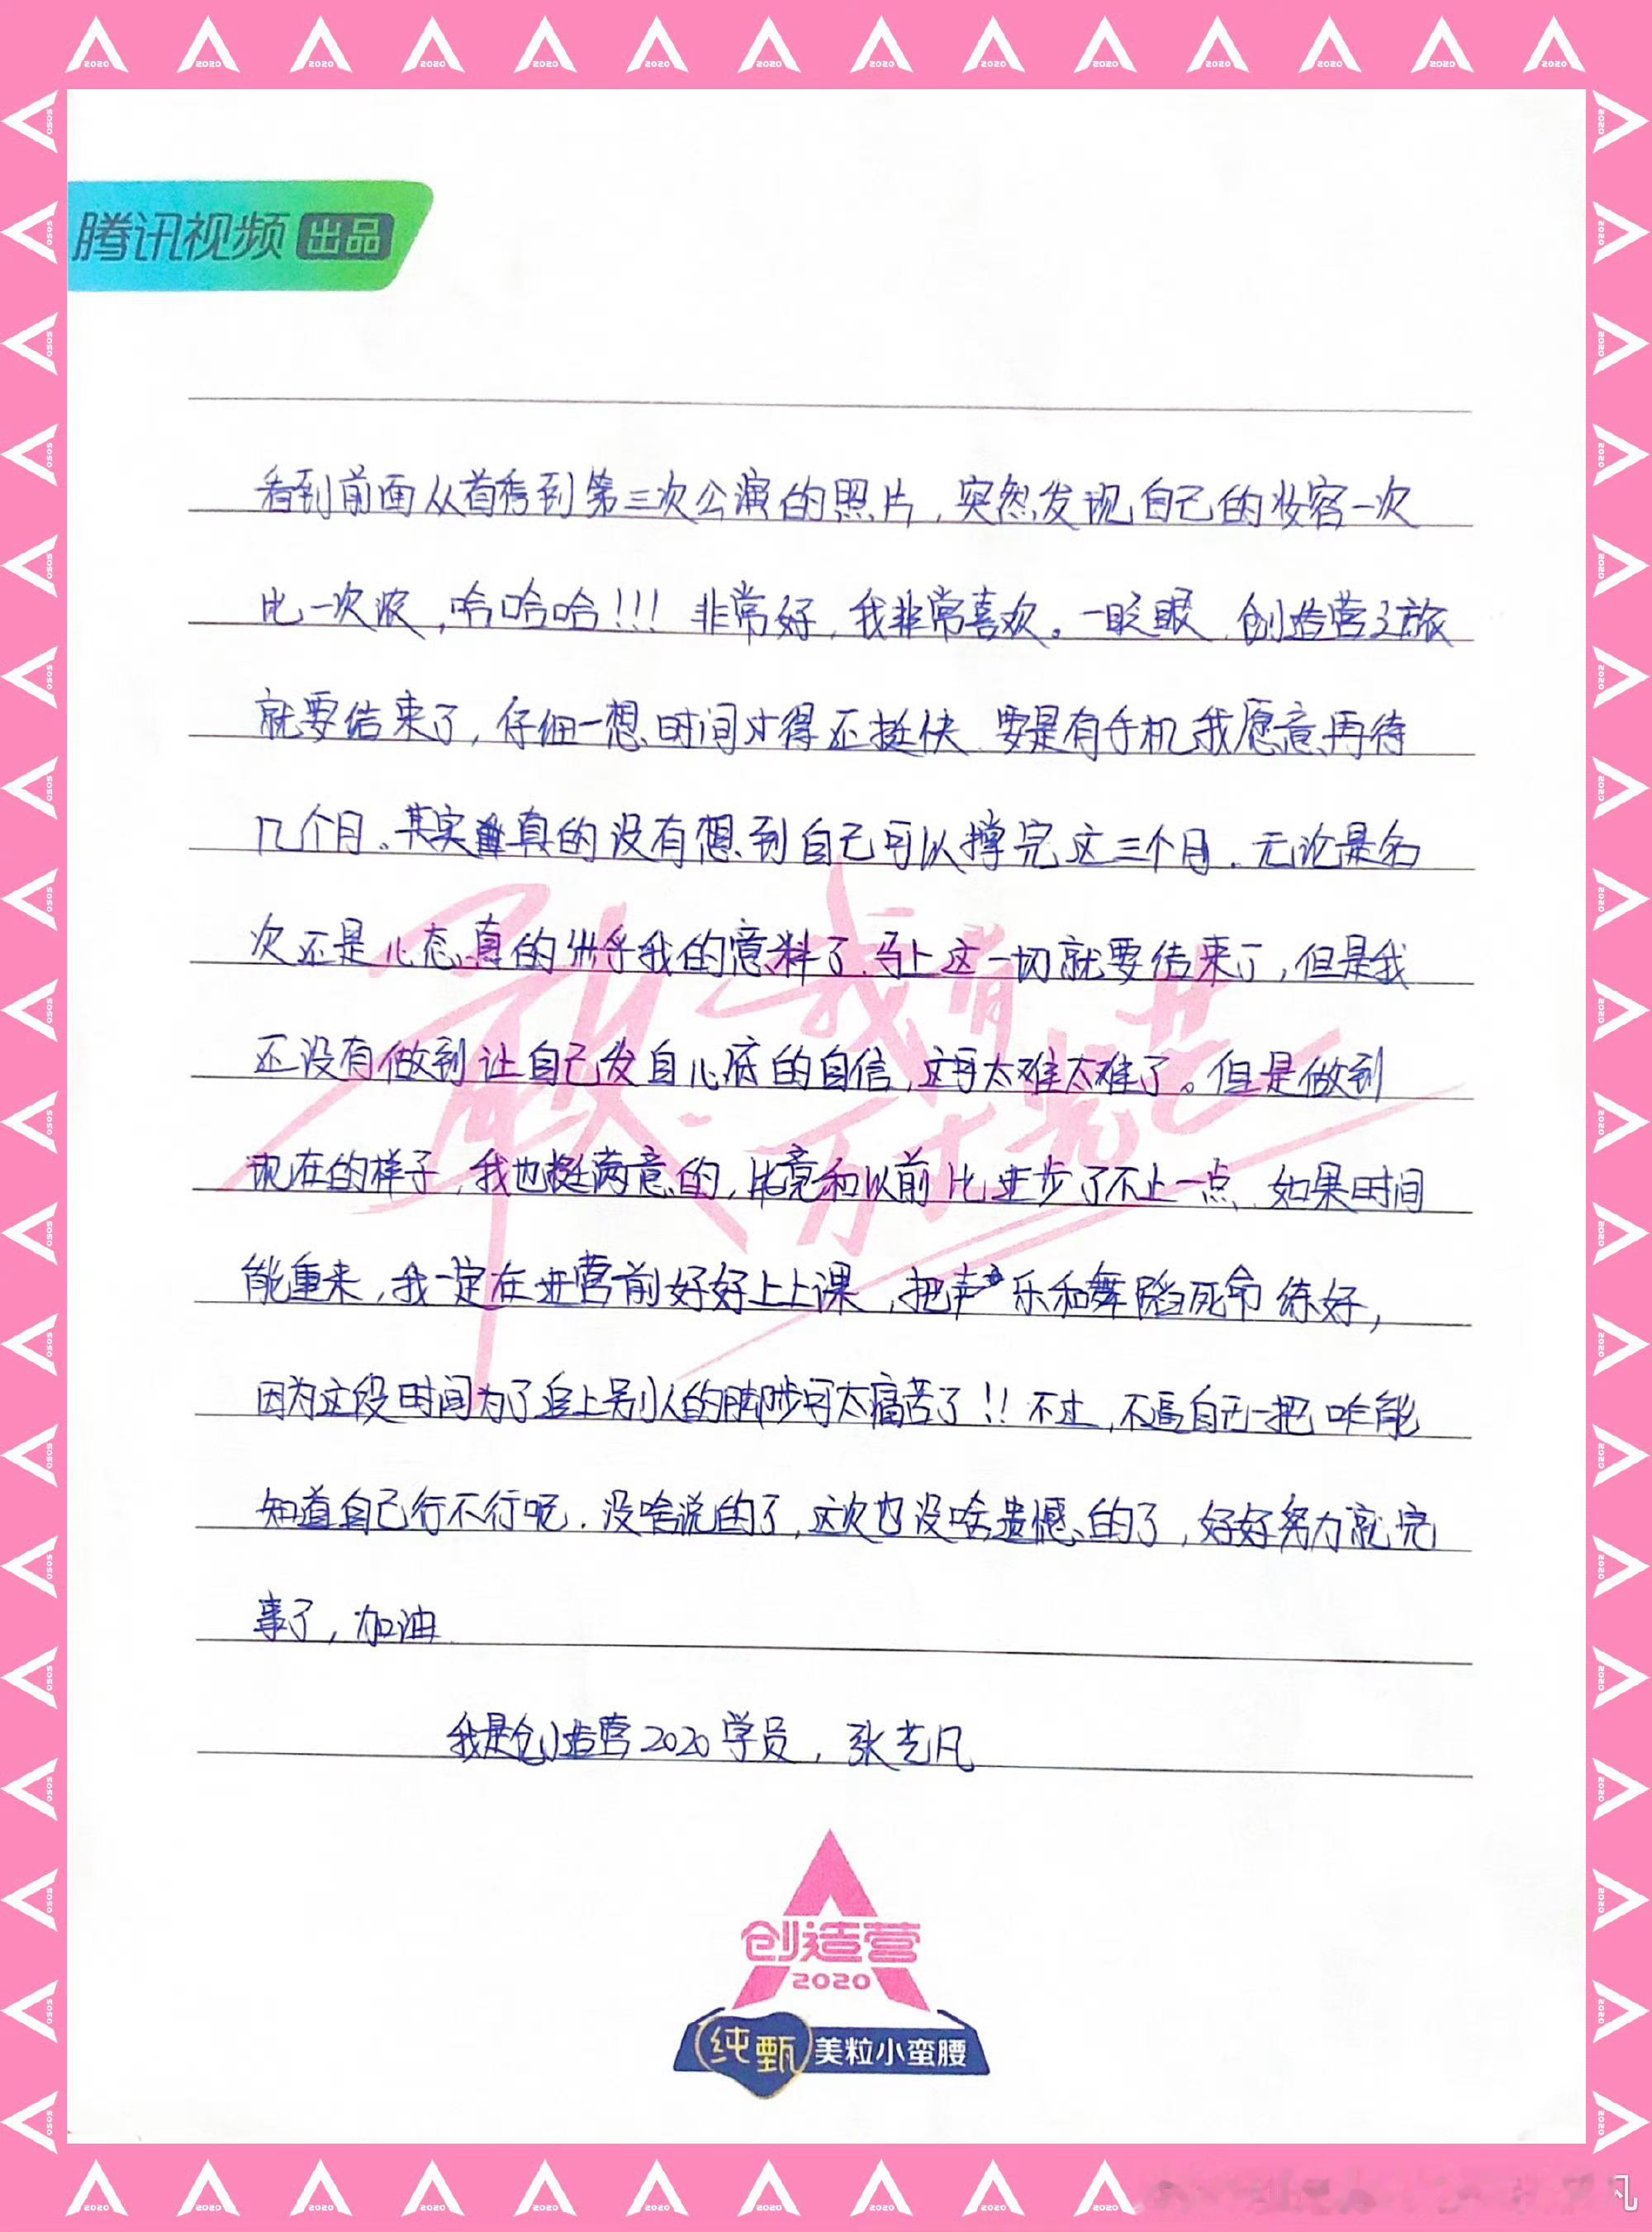 腾讯视频 出品
看到前面从首秀到第三次公演的照片，突然发现自己的妆容一次
比一次浓，哈哈哈!!! 非常好，我非常喜欢。一眨眼，创造营之旅
就要结束了，仔细一想时间过得还挺快，要是有手机我愿意再待
几个月。其实真的没有想到自己可以撑完这三个月，无论是名
次还是心态真的出乎我的意料了，马上这一切就要结束了，但是我
还没有做到让自己发自心底的自信，这可太难太难了。但是做到
现在的样子，我也挺满意的，比竟和以前比进步了不止一点，如果时间
能重来，我一定在进营前好好上上课，把声乐和舞蹈死命练好，
因为这段时间为了追上别人的脚步可太痛苦了!! 不过，不逼自己一把咋能
知道自己行不行呢，没啥说的了，这次也没啥遗憾的了，好好努力就完
事了，加油
我是创造营2020学员，张艺凡
敢，我有万丈光芒
创造营
2020
纯甄 美粒小蛮腰